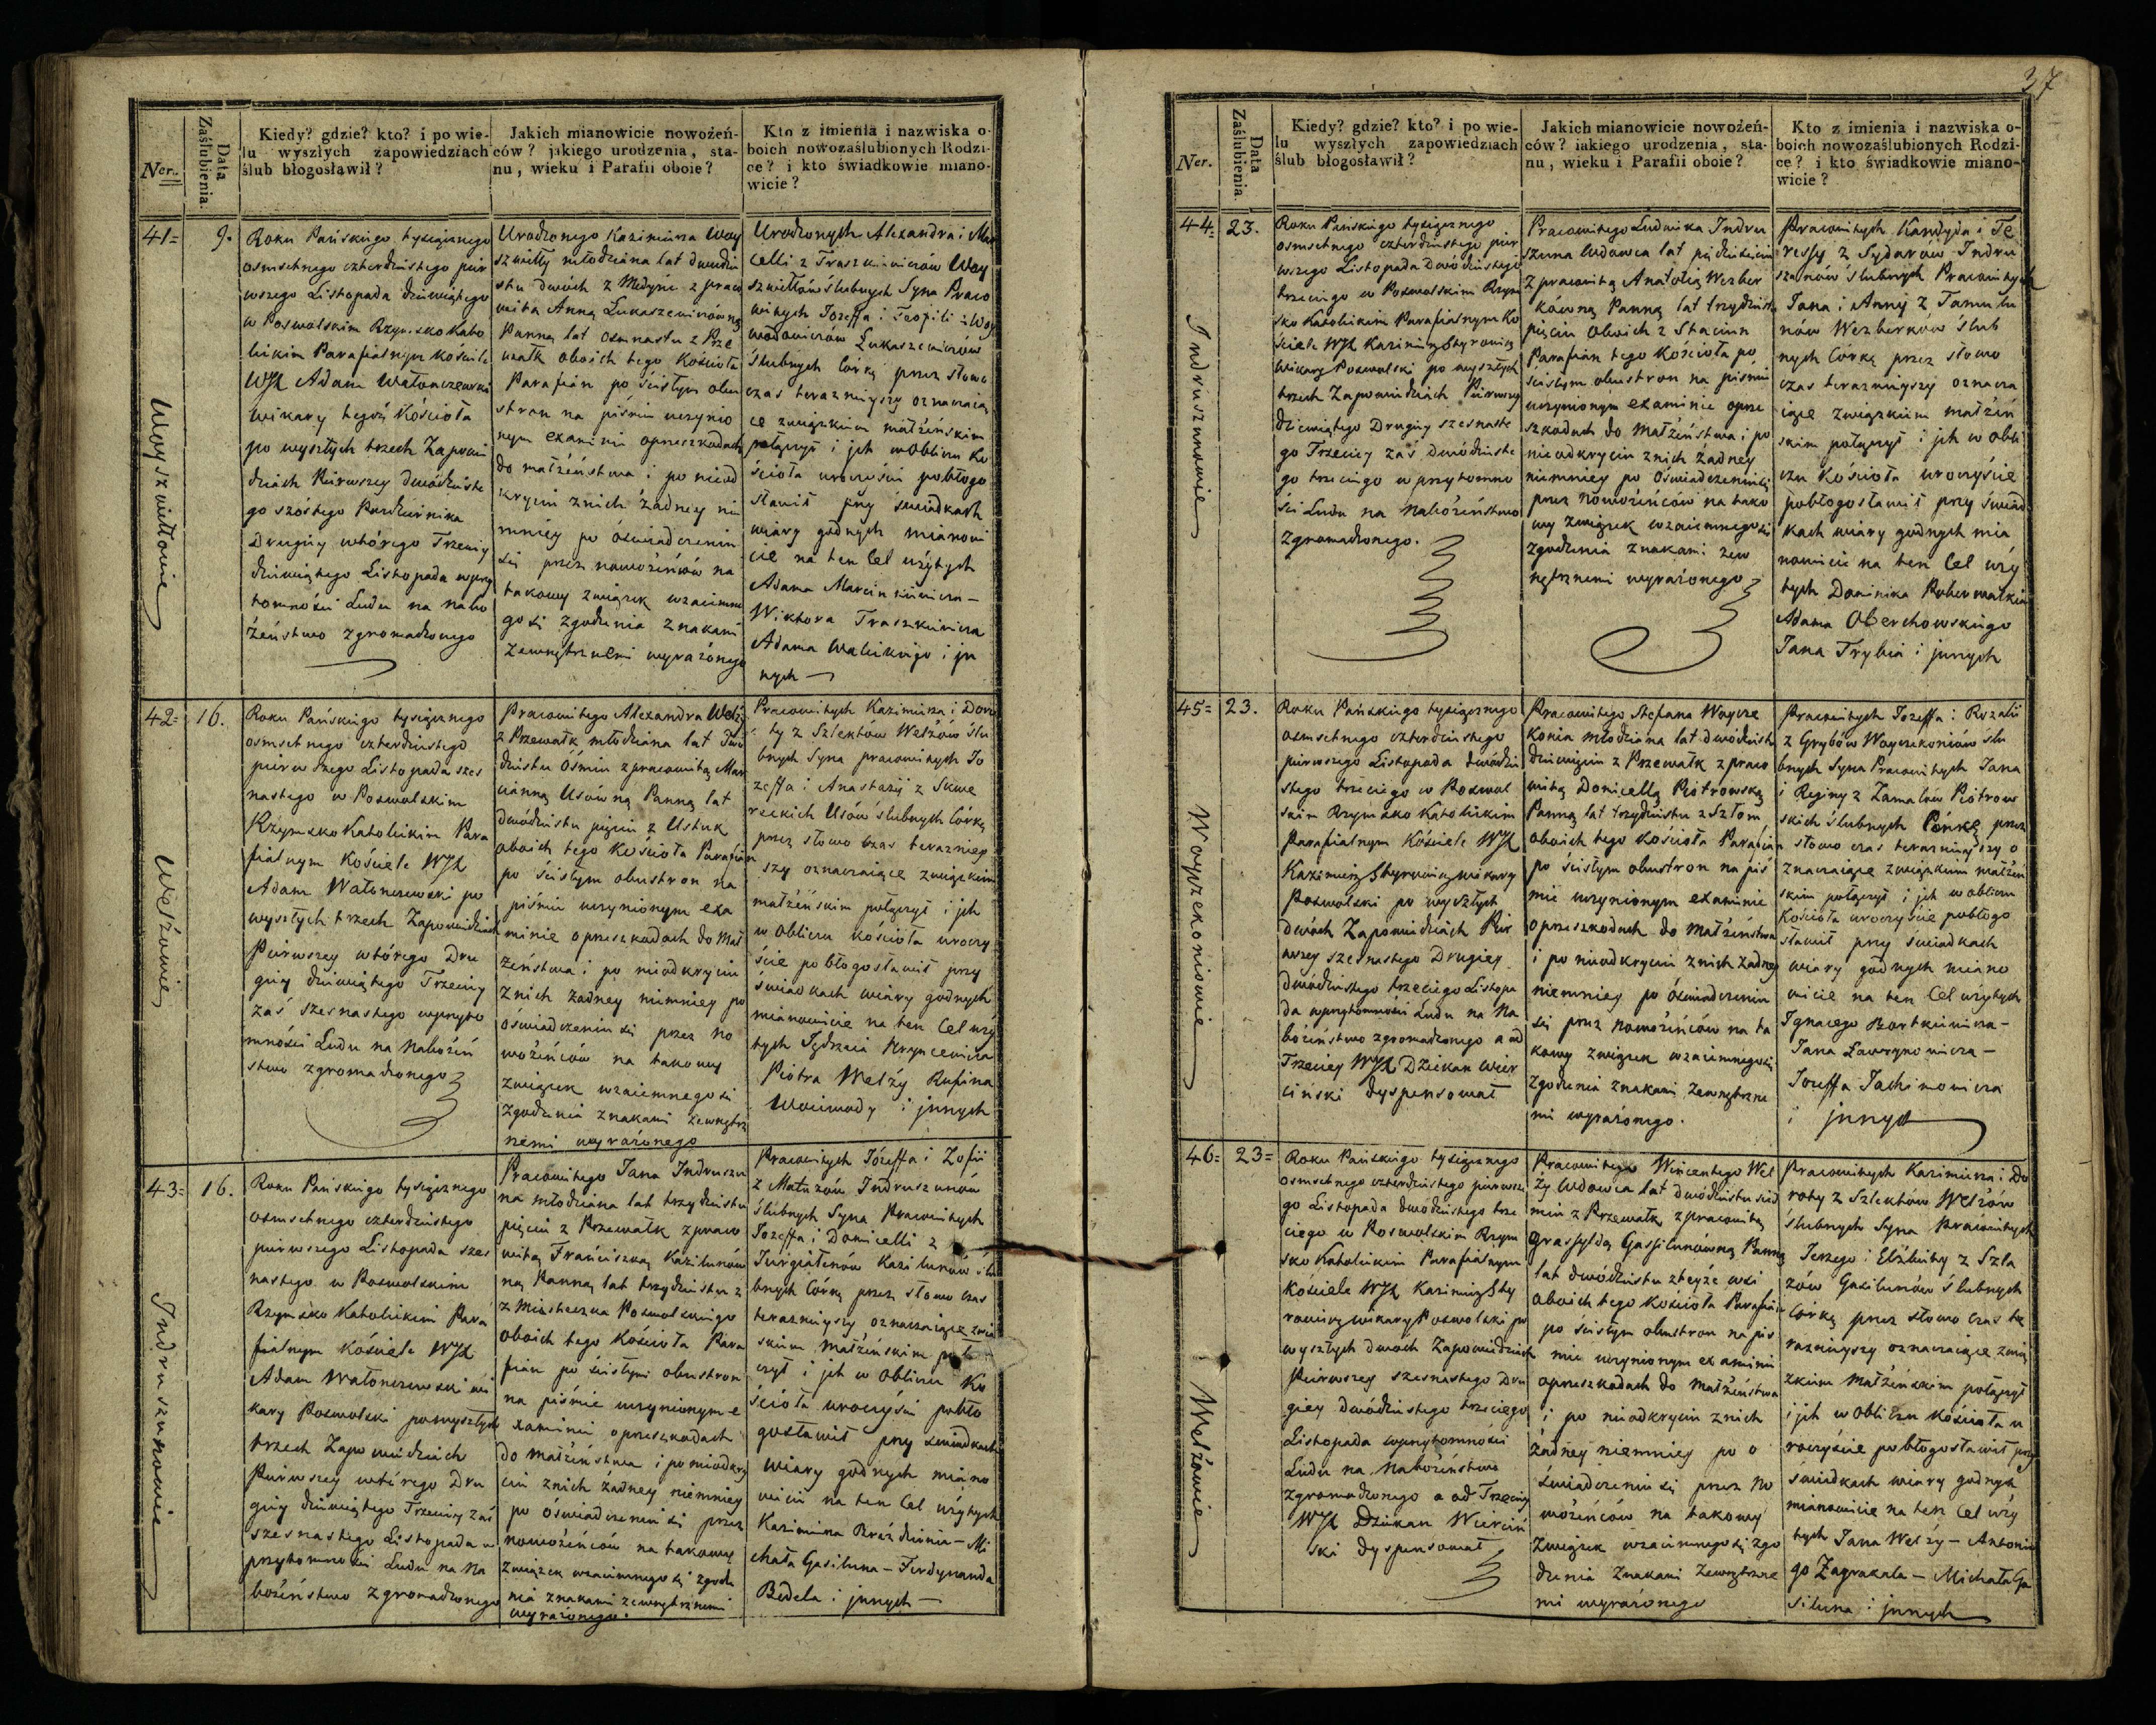 Ner.
Data Zaślubienia.
Kiedy? gdzie? kto? i po wie-
lu wyszłych zapowiedziach
ślub błogosławił?
Jakich mianowicie nowożeń-
ców? jakiego urodzenia, sta-
nu, wieku i Parafii oboie?
Kto z imienia i nazwiska o-
boich nowozaślubionych Rodzi-
ce? i kto świadkowie miano-
wicie?
41=
9.
Woyszwiłłowie
Roku Pańskiego tysiącznego
osmsetnego czterdziestego pier
wszego Listopada dziewiątego
w Poswolskim Rzymsko Kato
lickim Parafialnym Kościele
WJX Adam Wałonczewski
Wikary tegoż Kościoła
po wyszłych trzech Zapowie
dziach Pierwszey dwódzieste
go szóstego Pazdziernika
Drugiey wtórego Trzeciey
dziewiątego Listopada wprzy
tomności Ludu na nabo
żeństwo zgromadzonego
Urodzonego Kazimierza Woy
szwiłły młodziana lat dwudzie
stu dwóch z Medyń z praco
witą Anną Łukaszewiczówną
Panną lat osmnastu z Prze
wałk oboich tego Kościoła
Parafian po ścisłym obu
stron na piśmie uczynio
nym examinie oprzeszkodach
do małżeństwa i po nieod
kryciu znich żadney nie
mniey po oświadczeniu
się przez nowożeńców na
takowy związek wzaiemne
go si zgodzenia znakami
zewnętrznemi wyrażonego
Urodzonych Alexandra i Mar
celli z Traszkiewiczów Woy
szwiłłów ślubnych Syna Praco
witych Jozeffa i Teofili z Woy
wodowiczów Łukaszewiczów
Ślubnych Córką przez słowo
czas teraznieyszy oznaczaią
ce związkiem małżeńskim
połączył i jch wObliczu Ko
ścioła uroczyście pobłogo
sławił przy świadkach
wiary godnych mianowi
cie na ten Cel użytych
Adama Marcinkiewicza —
Wiktora Traszkiewicza
Adama Walickiego i jn
nych —
42=
16.
Wełżowie
Roku Pańskiego tysiącznego
osmsetnego czterdziestego
pierwszego Listopada szes
nastego w Poswolskim
Rzymsko Katolickim Para
fialnym Kościele WJX
Adam Wałonczewski po
wyszłych trzech Zapowiedziach
Pierwszey wtórego Dru
giey dziewiątego Trzeciey
zaś szesnastego wprzyto
mności Ludu na Nabożeń
stwo zgromadzonego
Pracowitego Alexandra Wełży
z Przewałk młodziana lat Dwó
dziestu Óśmiu z pracowitą Mar
cianną Usówną Panną lat
dwódziestu pięciu z Ustuk
oboich tego Kościoła Parafian
po ścisłym obustron na
piśmie uczynionym exa
minie oprzeszkodach do Mał
żeństwa i po nieodkryciu
Znich żadney niemniey po
oświadczeniu się przez no
wożeńców na takowy
związek wzaiemnego si
zgodzenia znakami zewnętrz
nemi wyrażonego
Pracowitych Kazimierza i Doro
ty z Szlektów Wełżów ślu
bnych Syna pracowitych Jo
zeffa i Anastazij z Skwe
reckich Usów ślubnych Córką
przez słowo Czas terazniey
szy oznaczaiące związkiem
małżeńskim połączył i jch
w Obliczu Kościoła uroczy
ście pobłogosławił przy
świadkach wiary godnych
mianowicie na ten Cel uży
tych Jędrzeia Kryncewicza
Piotra Wełży Rufina
Woiewody i jnnych
43=
16.
Indruszunowie
Roku Pańskiego tysiącznego
osmsetnego czterdziestego
pierwszego Listopada szes
nastego w Poswolskim
Rzymsko Katolickim Para
fialnym Kościele WJX
Adam Wałonczewski wi
kary Poswolski powyszłych
trzech Zapowiedziach
Pierwszey wtórego Dru
giey dziewiątego Trzeciey zaś
szesnastego Listopada w
przytomności Ludu na Na
bożeństwo zgromadzonego
Pracowitego Jana Indruszu
na młodziana lat trzydziestu
pięciu z Przewałk z praco
witą Franciszką Kazilunów
ną Panną lat trzydziestu z
z Miasteczka Poswolskiego
oboich tego Kościoła Para
fian po ścisłym obustron
na piśmie uczynionym e
xaminie oprzeszkodach
do małżeństwa i po nieodkry
ciu znich żadney niemniey
po oświadczeniu si przez
nowożeńców na takowy
związek wzaiemnego si zgodze
nia znakami zewnętrznemi
wyrażonego.
Pracowitych Józeffa i Zofii
z Matuzów Indruszunów
Ślubnych Syna Pracowitych
Jozeffa i Domicelli z
Jurgiałenów Kazilunów ślu
bnych Córką przez słowo czas
teraznieyszy oznaczaiące zwią
skiem małżeńskim połą
czył i jch w Obliczu Ko
ścioła uroczyście pobło
gosławił przy świadkach
Wiary godnych miano
wicie na ten Cel użytych
Kazimierza Breżdzienia — Mi
chała Gasiluna — Ferdynanda
Bedela i jnnych —
37
Ner.
Data Zaślubienia.
Kiedy? gdzie? kto? i po wie-
lu wyszłych zapowiedziach
ślub błogosławił?
Jakich mianowicie nowożeń-
ców? iakiego urodzenia, sta-
nu, wieku i Parafii oboie?
Kto z imienia i nazwiska o-
boich nowozaślubionych Rodzi-
ce? i kto świadkowie miano-
wicie?
44=
23.
Indruszunowie
Roku Pańskiego tysiącznego
osmsetnego czterdziestego pier
wszego Listopada Dwódziestego
trzeciego w Poswolskim Rzym
sko Katolickim Parafialnym Ko
ściele WJX Kazimierz Styrowicz
Wikary Poswolski po wyszłych
trzech Zapowiedziach Pierwszey
dziewiątego Drugiey szesnaste
go Trzeciey zaś dwódzieste
go trzeciego w przytomno
ści Ludu na Nabożeństwo
Zgromadzonego.
Pracowitego Ludwika Indru
szuna Wdowca lat pięćdziesięciu
Z pracowitą Anatolią Wezber
kówną Panną lat trzydziestu
pięciu Oboich z Staciun
Parafian tego Kościoła po
ścisłym obustron na piśmie
uczynionym examinie oprze
szkodach do Małżeństwa i po
nieodkryciu znich żadney
niemniey po Oświadczeniu się
przez Nowożeńców na tako
wy związek wzaiemnego si
zgodzenia znakami zew
nętrznemi wyrażonego
Pracowitych Kandyda i Te
ressy z Sydarów Indru
szunów ślubnych Pracowitych
Jana i Anny z Tamulu
nów Wezberków Ślub
nych Córką przez słowo
czas teraznieyszy oznacza
iące związkiem małżeń
skim połączył i jch w Obli
czu Kościoła uroczyście
pobłogosławił przy świad
kach wiary godnych mia
nowicie na ten Cel uży
tych Dominika
Adama Oberchowskiego
Jana Trybia i jnnych
45=
23.
Woyczekoniowie
Roku Pańskiego tysiącznego
osmsetnego czterdziestego
pierwszego Listopada dwódzie
stego trzeciego w Poswol
skim Rzymsko Katolickim
Parafialnym Kościele WJX
Kazimierz Styrowicz wikary
Poswolski po wyszłych
dwóch Zapowiedziach Pier
wszey szesnastego Drugiey
dwódziestego trzeciego Listopa
da wprzytomności Ludu na Na
bożeństwo zgromadzonego a od
Trzeciey WJX Dziekan Wier
ciński dyspensował
Pracowitego Stefana Woycze
konia młodziana lat dwódziestu
dziewięciu z Przewałk z praco
witą Domicellą Piotrowską
Panną lat trzydziestu z Szłom
oboich tego Kościoła Parafian
po ścisłym obustron na piś
mie uczynionym examinie
oprzeszkodach do Małżeństwa
i po nieodkryciu znich żadney
niemniey po oświadczeniu
się przez nowożeńców na ta
kowy związek wzaiemnego si
Zgodzenia znakami zewnętrzne
mi wyrażonego.
Pracowitych Jozeffa i Rozalii
z Grybów Woyczekoniów ślu
bnych Syna Pracowitych Jana
i Reginy z Zamalów Piotrow
skich ślubnych Córką przez
słowo czas teraznieyszy o
znaczaiące związkiem małżeń
skim połączył i jch w obliczu
Kościoła uroczyście pobłogo
sławił przy świadkach
wiary godnych miano
wicie na ten Cel użytych
Ignacego Bartkiewicza —
Jana Ławrynowicza —
Jozeffa Jachimowicza
i jnnych
46=
23=
Wełżowie
Roku Pańskiego tysiącznego
osmsetnego czterdziestego pierwsze
go Listopada dwódziestego trze
ciego w Poswolskim Rzym
sko Katolickim Parafialnym
Kościele WJX Kazimierz Sty
rowicz wikary Poswolski po
wyszłych dwóch Zapowiedziach
Pierwszey szesnastego Dru
giey dwódziestego trzeciego
Listopada wprzytomności
Ludu na Nabożeństwo
zgromadzonego a od Trzeciey
WJX Dziekan Wierciń
ski dyspensował
Pracowitego Wincentego Weł
ży Wdowca lat dwódziestu sied
miu z Przewałk z pracowitą
Grassyldą Gassilunówną Panną
lat dwódziestu z teyże wsi
oboich tego Kościoła Parafian
po ścisłym obustron na piś
mie uczynionym examinie
oprzeszkodach do Małżeństwa
i po nieodkryciu znich
żadney niemniey po o
świadczeniu się przez No
wożeńców na takowy
Związek wzaiemnego się zgo
dzenia Znakami Zewnętrzne
mi wyrażonego
Pracowitych Kazimierza i Do
roty z Szlektów Wełżów
ślubnych Syna Pracowitych
Jerzego i Elżbiety z Szla
zów Gasilunów ślubnych
Córką przez słowo czas te
raznieyszy oznaczaiące zwią
zkiem Małżeńskim połączył
i jch w Obliczu Kościoła u
roczyście pobłogosławił przy
świadkach wiary godnych
mianowicie na ten Cel uży
tych Jana Wełży — Antonie
go Zagrakala — Michała Ga
siluna i jnnych